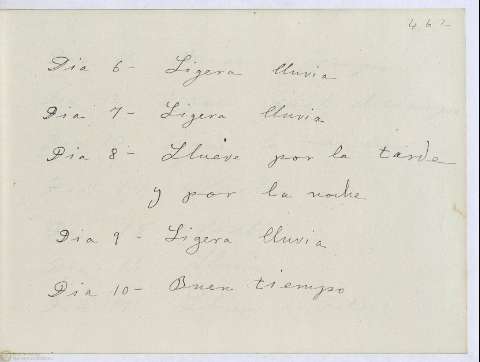 462
Dia 6 - Ligera lluvia
Dia 7 - Ligera lluvia
Dia 8 - Llueve por la tarde
y por la noche
Dia 9 - Ligera lluvia
Dia 10 - Buen tiempo